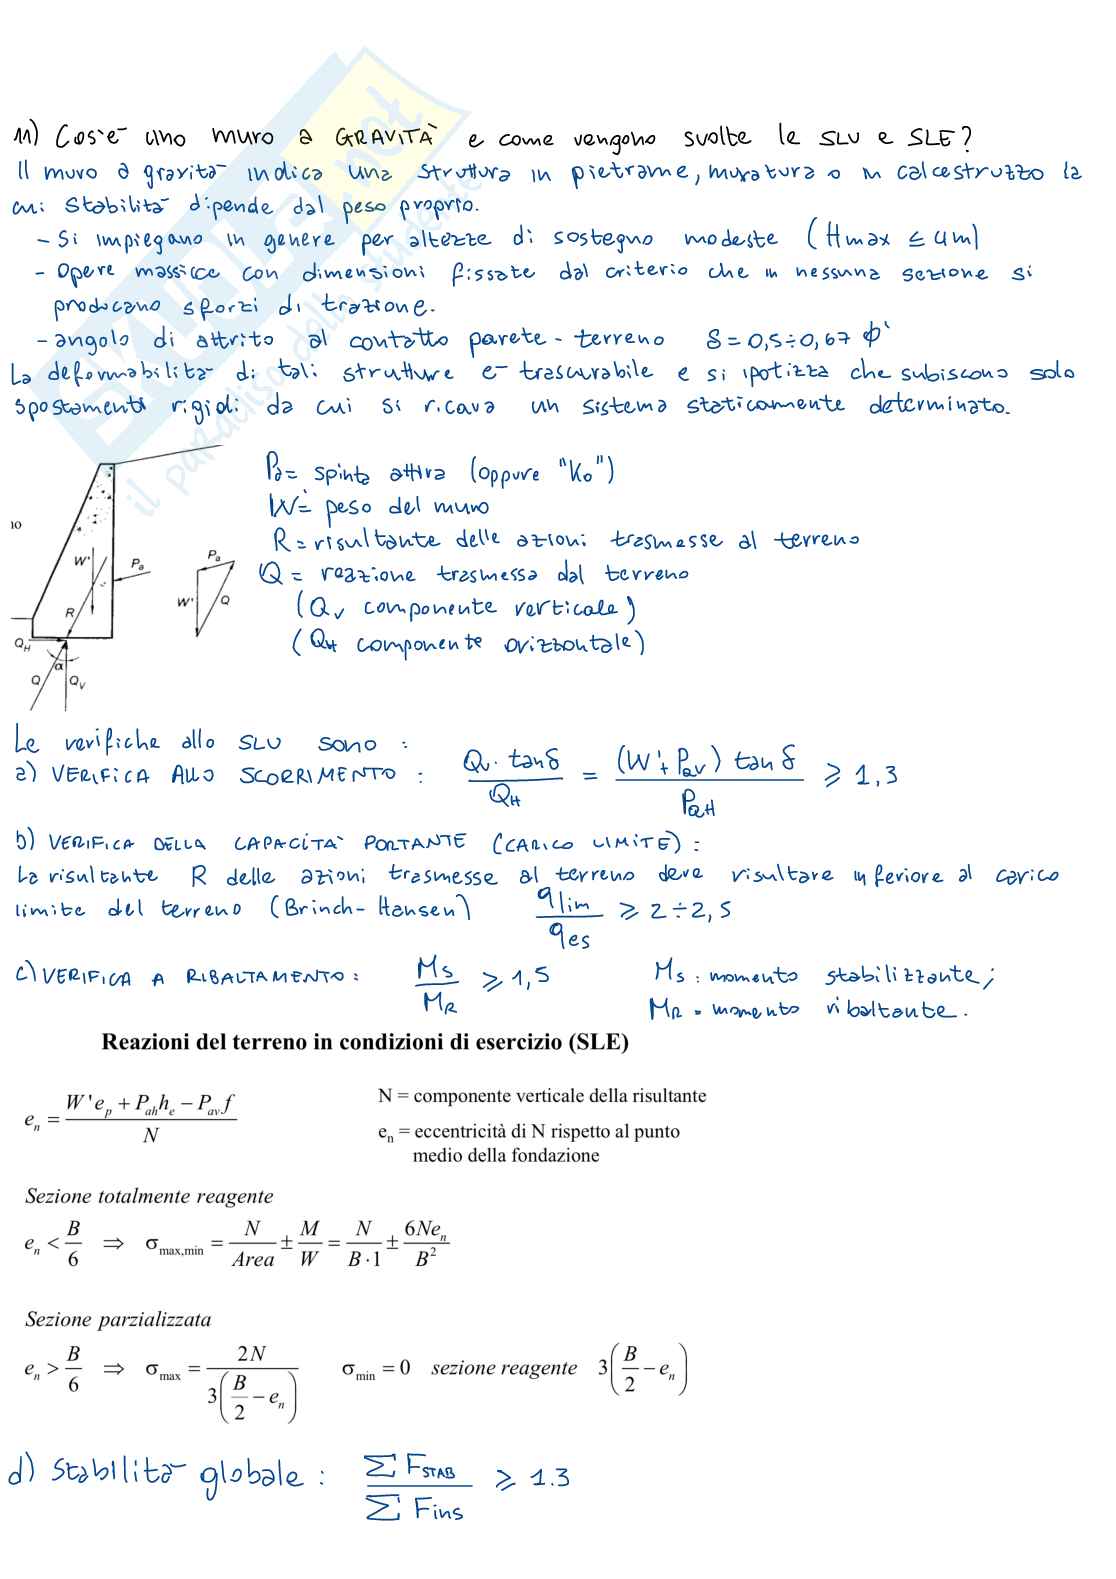 11) Cos'è uno muro a GRAVITÀ e come vengono svolte le SLU e SLE?
Il muro a gravità indica una struttura in pietrame, muratura o in calcestruzzo la
cui stabilità dipende dal peso proprio.
- Si impiegano in genere per altezze di sostegno modeste (Hmax ≤ 4m)
- Opere massicce con dimensioni fissate dal criterio che in nessuna sezione si
producano sforzi di trazione.
- angolo di attrito al contatto parete-terreno δ = 0,5÷0,67 ϕ'
La deformabilità di tali strutture è trascurabile e si ipotizza che subiscono solo
spostamenti rigidi da cui si ricava un sistema staticamente determinato.
Pa = spinta attiva (oppure "K0")
W' = peso del muro
R = risultante delle azioni trasmesse al terreno
Q = reazione trasmessa dal terreno
(Qv componente verticale)
(QH componente orizzontale)
10
W' Pa R QH α Q Qv
Pa W' Q
Le verifiche allo SLU sono :
a) VERIFICA ALLO SCORRIMENTO : Qv · tanδ / QH = (W' + Pav) tanδ / PaH ≥ 1,3
b) VERIFICA DELLA CAPACITÀ PORTANTE (CARICO LIMITE) :
La risultante R delle azioni trasmesse al terreno deve risultare inferiore al carico
limite del terreno (Brinch-Hansen) qlim / qes ≥ 2÷2,5
c) VERIFICA A RIBALTAMENTO : MS / MR ≥ 1,5 MS : momento stabilizzante;
MR = momento ribaltante.
Reazioni del terreno in condizioni di esercizio (SLE)
e_n = (W'e_p + P_ah h_e − P_av f) / N N = componente verticale della risultante
e_n = eccentricità di N rispetto al punto
medio della fondazione
Sezione totalmente reagente
e_n < B/6 ⇒ σ_max,min = N/Area ± M/W = N/(B·1) ± 6Ne_n/B²
Sezione parzializzata
e_n > B/6 ⇒ σ_max = 2N / 3(B/2 − e_n) σ_min = 0 sezione reagente 3(B/2 − e_n)
d) Stabilità globale : ΣF_STAB / ΣF_ins ≥ 1.3
SKUOLA.net
il paradiso dello studente